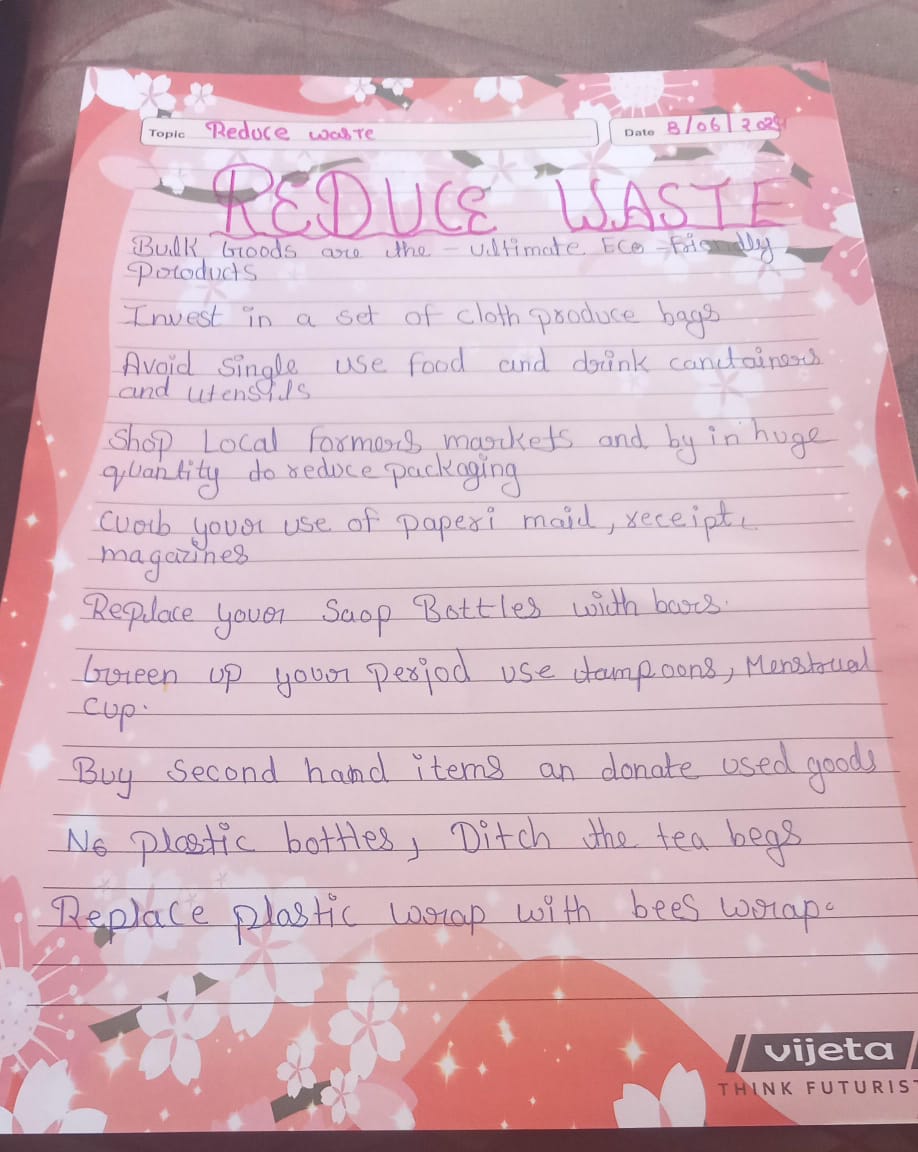 Topic Reduce waste
Date 8/06/2024
REDUCE WASTE
Bulk Goods are the - ultimate Eco-Friendly
Products
Invest in a set of cloth produce bags
Avoid Single use food and drink containers
and utensils
Shop Local formers markets and by in huge
quantity do reduce packaging
Curb your use of paper maid, receipt,
magazines
Replace your Saop Bottles with bars.
Green up your period use tampoons, Menstrual
Cup.
Buy Second hand items an donate used goods
No plastic bottles, Ditch the tea begs
Replace plastic wrap with bees wrap.
vijeta
THINK FUTURIST